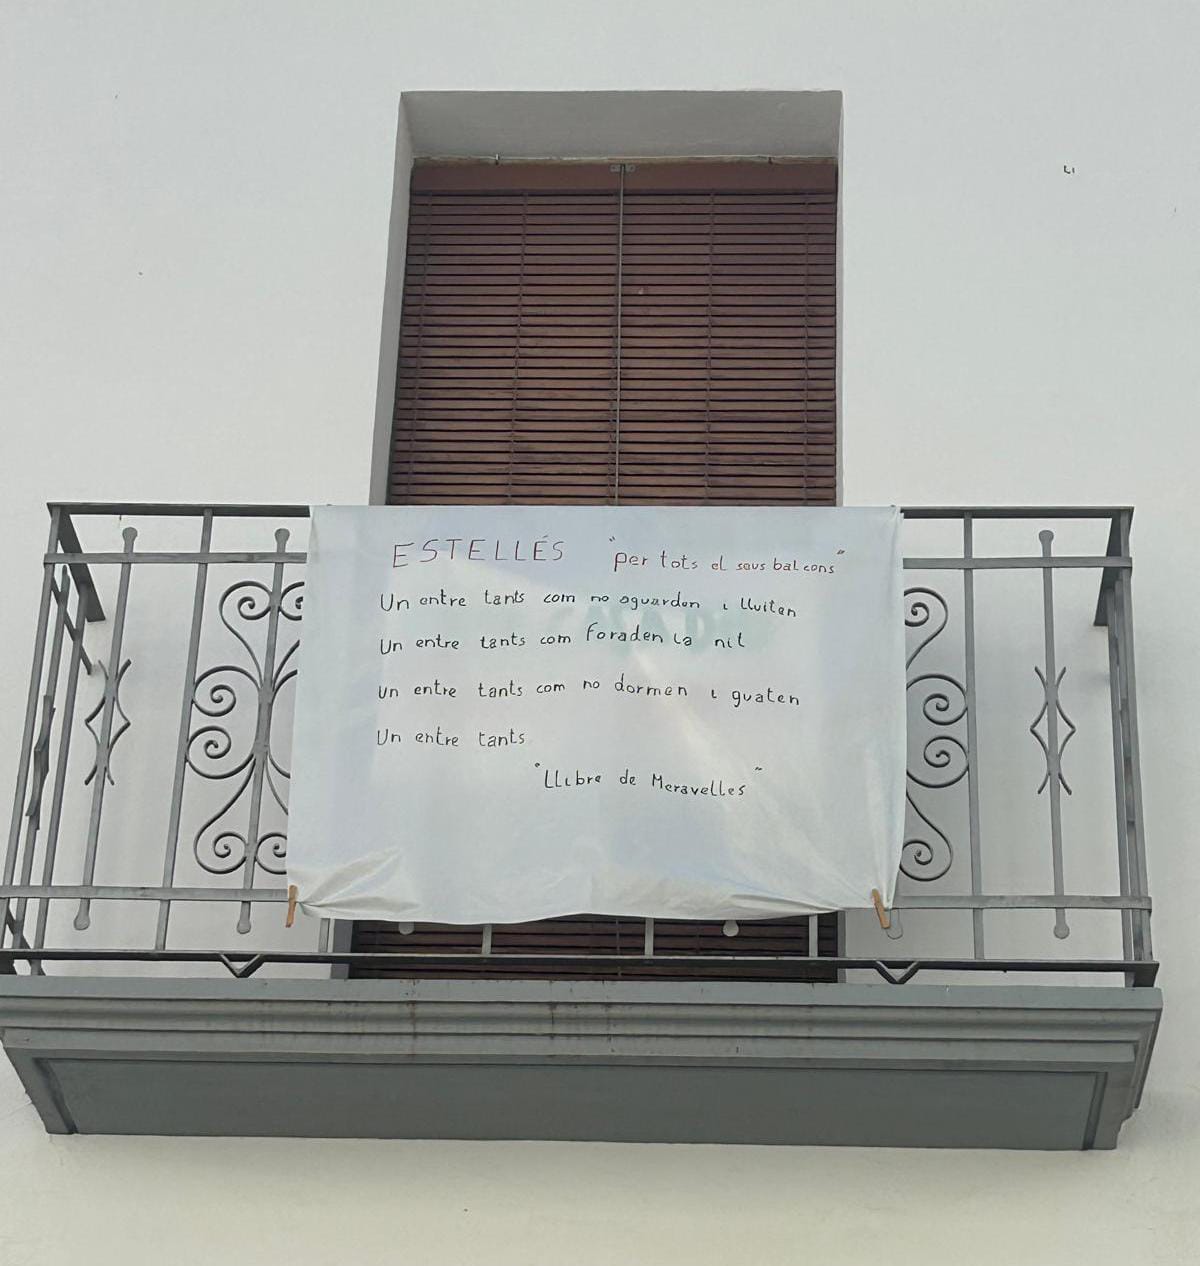 ESTELLÉS "per tots el seus balcons"
Un entre tants com no aguarden i lluiten
Un entre tants com foraden la nit
Un entre tants com no dormen i guaten
Un entre tants
"Llibre de Meravelles"